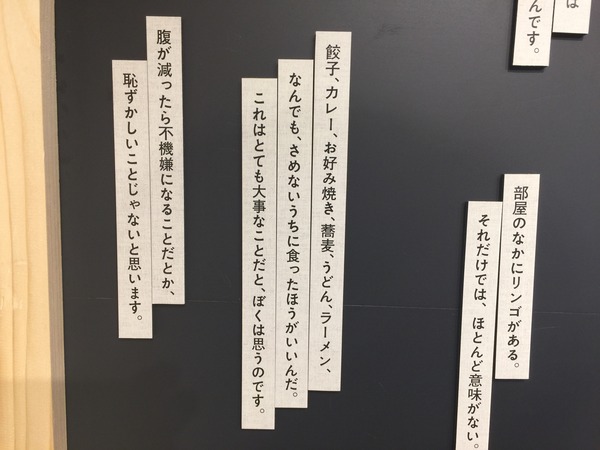 は
んです。
部屋のなかにリンゴがある。
それだけでは、ほとんど意味がない。
餃子、カレー、お好み焼き、蕎麦、うどん、ラーメン、
なんでも、さめないうちに食ったほうがいいんだ。
これはとても大事なことだと、ぼくは思うのです。
腹が減ったら不機嫌になることだとか、
恥ずかしいことじゃないと思います。